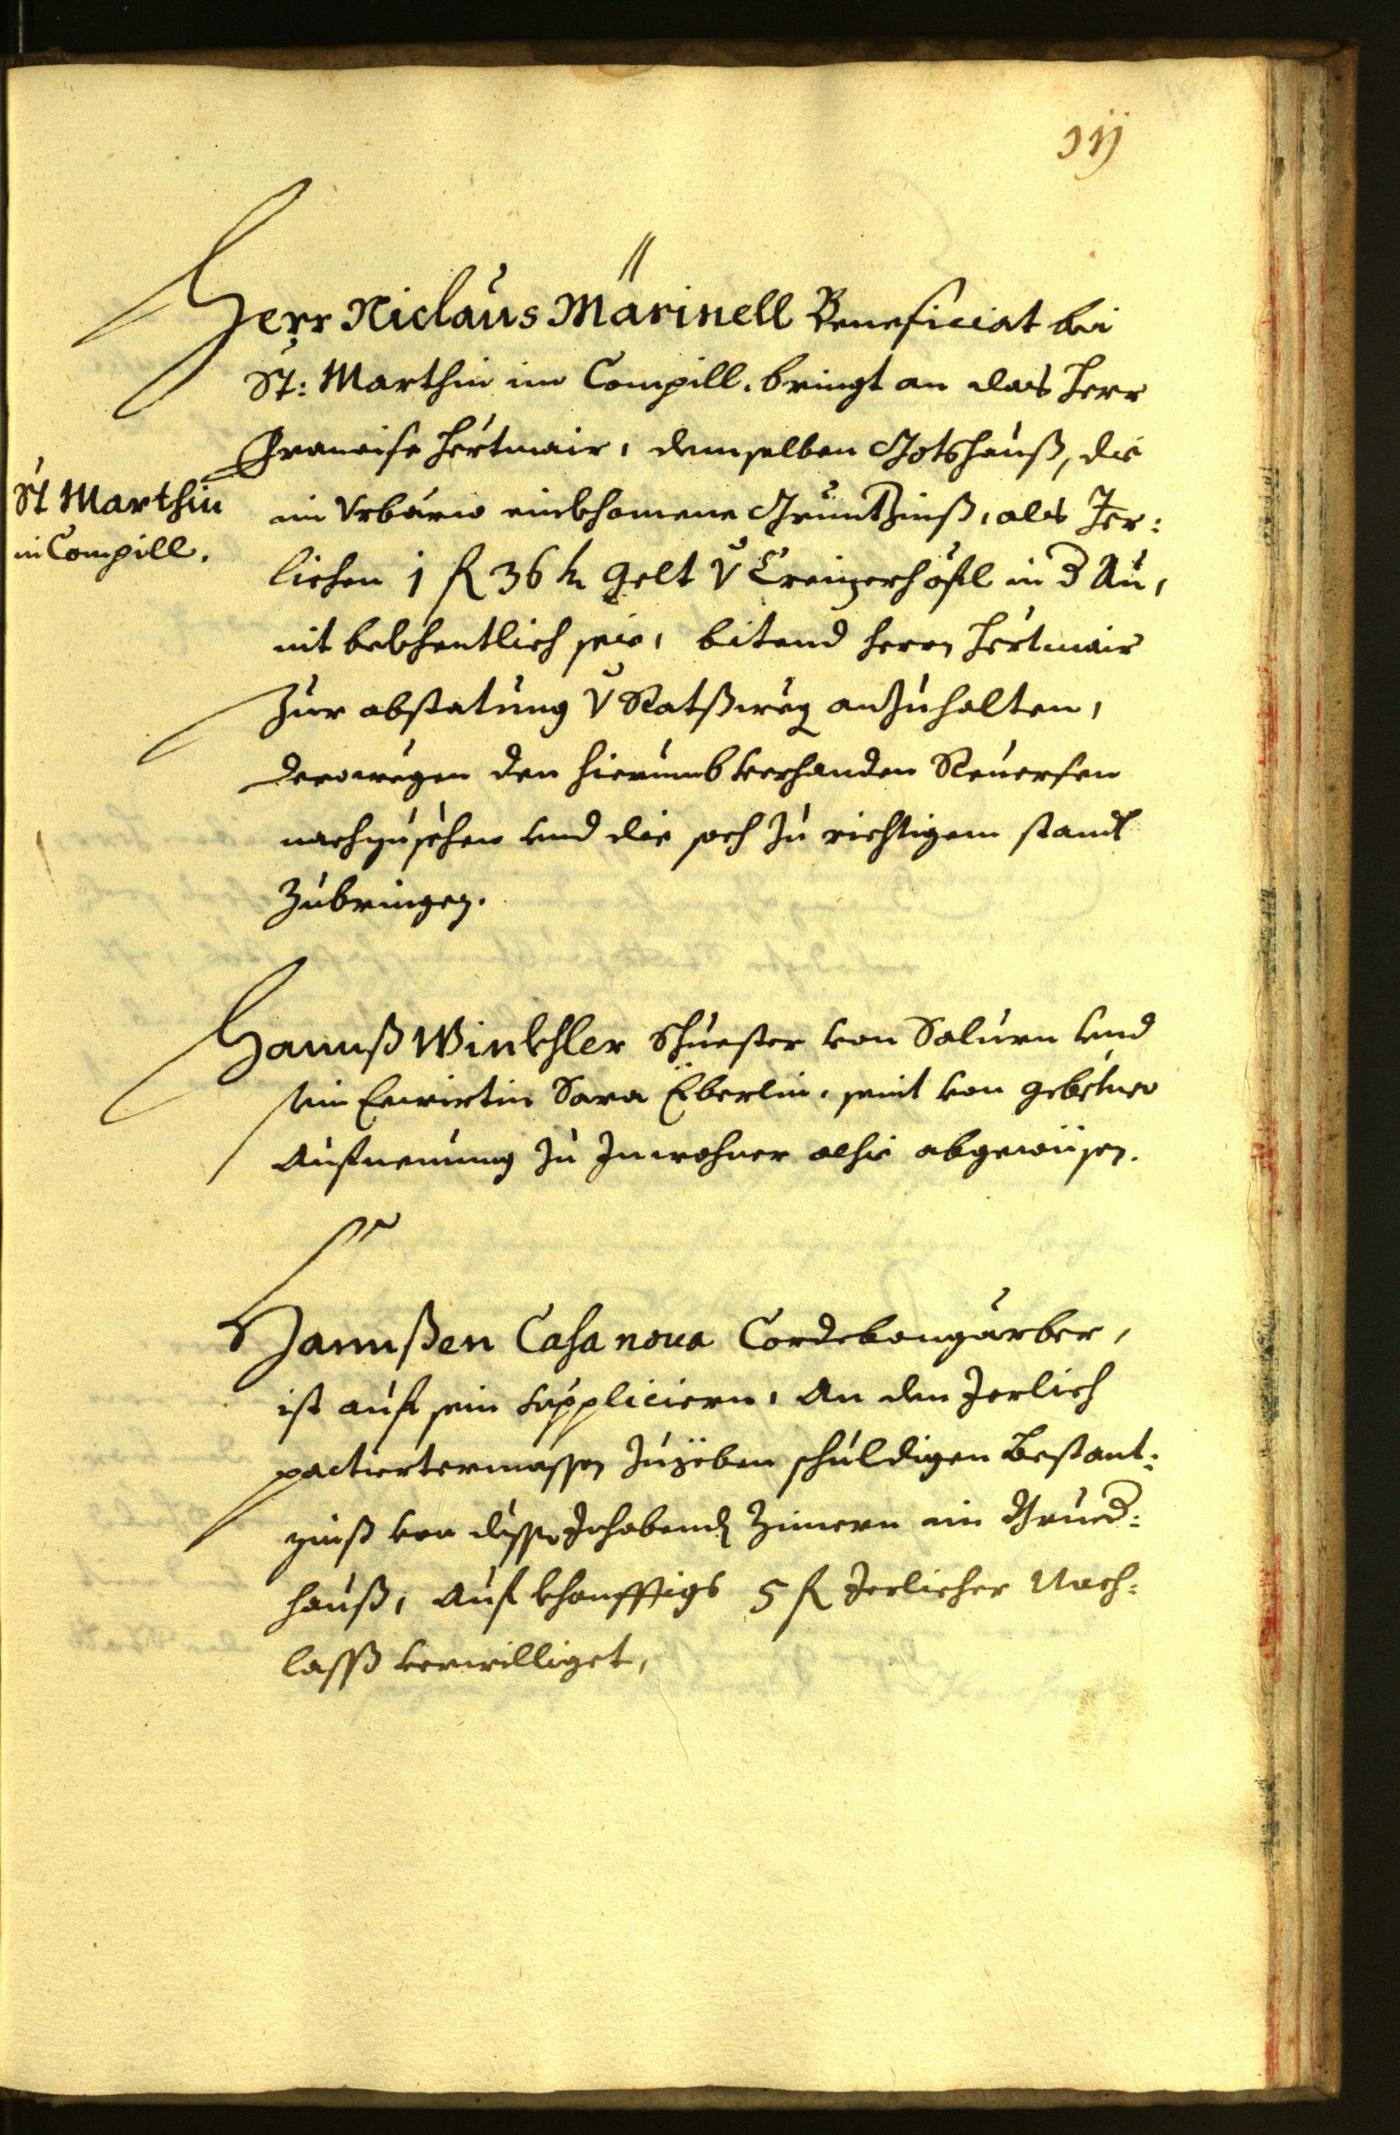 Herr Niclaus Marinell Beneficiat bei
St: Marthin im Compill. bringt an das Herr
Francisc Hërtmair, demselben Gotshauß, die
im Urbario einkhomene Gruntzinß, als Jer:
lichen 1 fl 36 kr gelt v Creizerhöfl in d Au,
nit bekhentlich sei, bitend Herrn Hërtmair
zur abstatung v Ratßweg anzuhalten,
derowegen den hierumb verhanden Reversen
nachzusehen und die sach zu richtigem standt
zubringen.
St Marthin
in Compill.
Hannß Winkhler Schuester von Salurn und
sein Ewirtin Sara Eberlin, seint von gebetner
Aufnemung zu Inwohner alhie abgewisen.
Hannßen Casanova Cordebongärber,
ist auf sein suppliciern, An den Jerlich
pactiertermassen zugeben schuldigen Bestant:
zinß von Inhabend Zimern im
hauß, Auf khonfftigs 5 fl Jerlicher Nach:
lasß verwilliget,